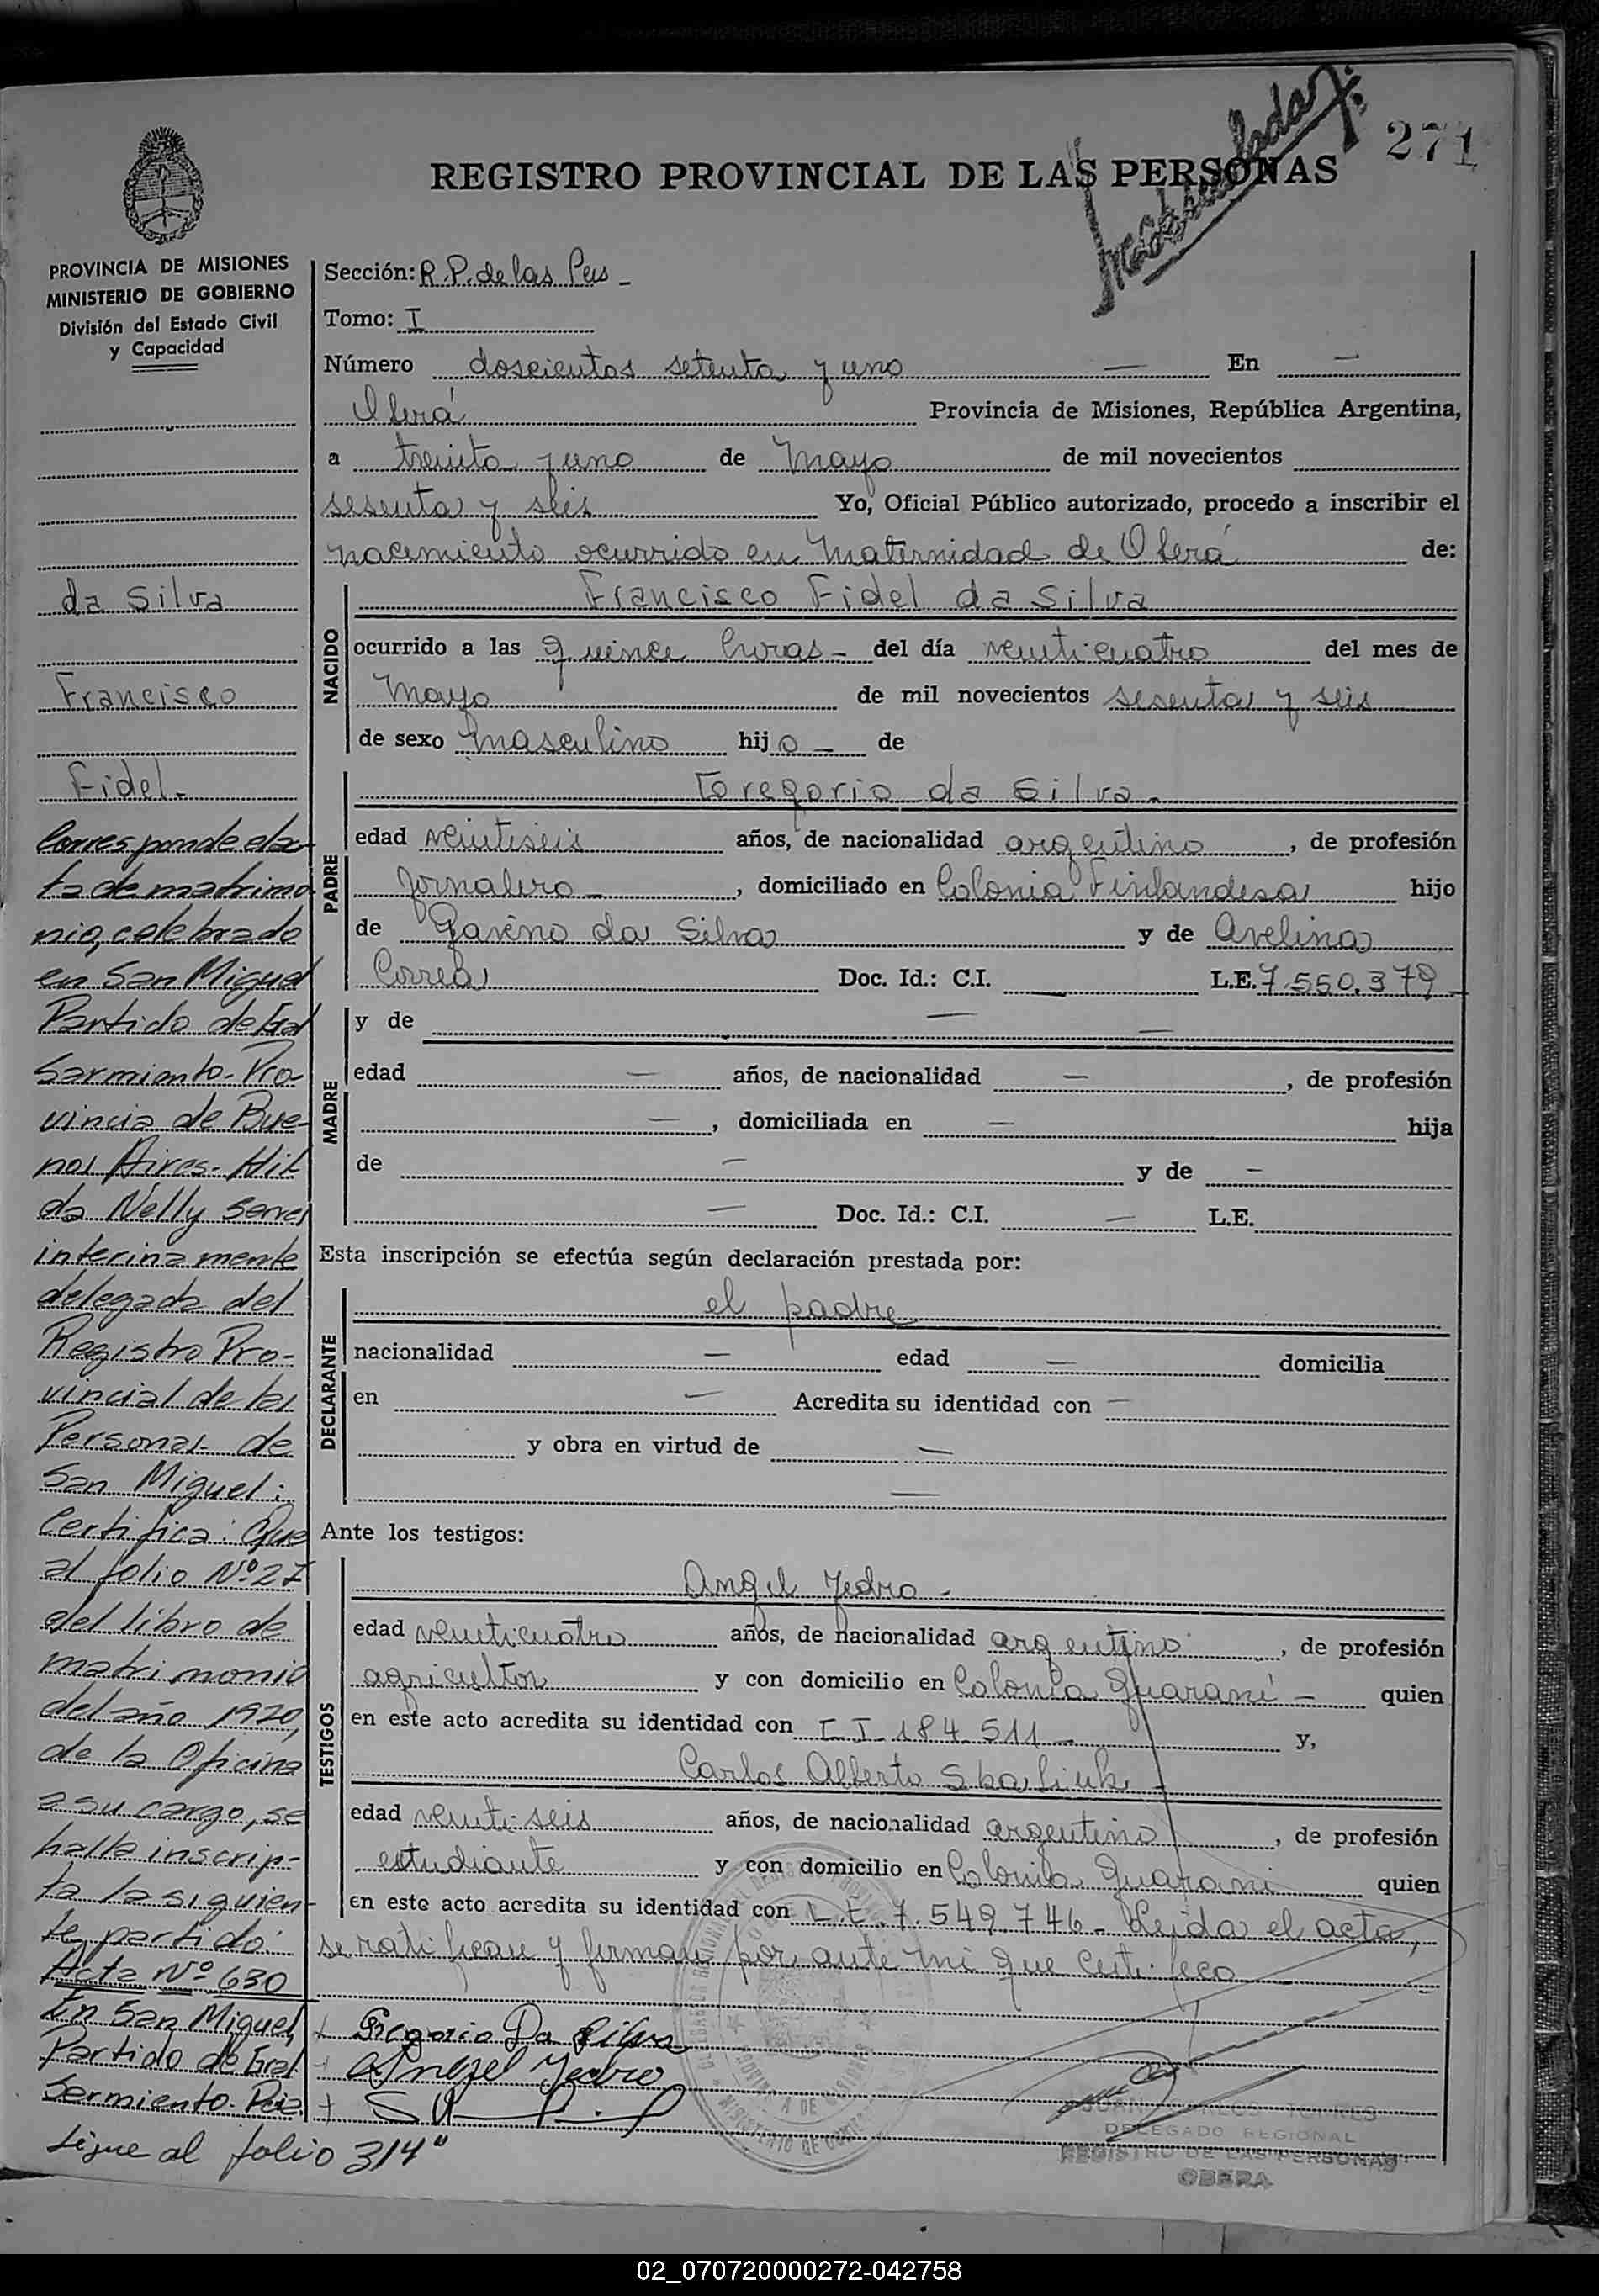 271
REGISTRO PROVINCIAL DE LAS PERSONAS
PROVINCIA DE MISIONES
MINISTERIO DE GOBIERNO
División del Estado Civil
y Capacidad
da Silva
Francisco
Fidel.
Corresponde el ac-
ta de matrimo
nio, celebrado
en San Miguel
Partido de Gral
Sarmiento. Pro-
vincia de Bue-
nos Aires. Hil
da Nélly
interinamente
delegada del
Registro Pro-
vincial de las
Personas de
San Miguel:
Certifica: Que
al folio Nº 27
del libro de
matrimonio
del año
de la Oficina
a su cargo, se
halla inscrip-
ta la siguien-
te partida
Acta Nº 630
En San Miguel,
Partido de Gral.
Sarmiento.
Sigue al folio 314
Sección: R. P. de las Pers -
Tomo: I
Número doscientos setenta y uno — En —
Oberá Provincia de Misiones, República Argentina,
a treinta y uno de Mayo de mil novecientos
sesenta y seis Yo, Oficial Público autorizado, procedo a inscribir el
nacimiento ocurrido en Maternidad de Oberá de:
NACIDO
Francisco Fidel da Silva
ocurrido a las quince horas - del día veinticuatro del mes de
Mayo de mil novecientos sesenta y seis
de sexo masculino hijo — de
PADRE
da Silva -
edad veintiseis años, de nacionalidad argentino, de profesión
jornalero -, domiciliado en Colonia Finlandesa hijo
de da Silva y de Avelina
Correa Doc. Id.: C.I. — L.E. 7.550.379 -
MADRE
y de — —
edad — años, de nacionalidad —, de profesión
—, domiciliada en — hija
de — y de —
— Doc. Id.: C.I. — L.E.
Esta inscripción se efectúa según declaración prestada por:
DECLARANTE
el padre
nacionalidad — edad — domicilia
en — Acredita su identidad con —
y obra en virtud de —
—
Ante los testigos:
TESTIGOS
Angel Yedro -
edad veinticuatro años, de nacionalidad argentino, de profesión
agricultor y con domicilio en Colonia Guaraní - quien
en este acto acredita su identidad con 184.511 - y,
Carlos Alberto -
edad veintiseis años, de nacionalidad argentino, de profesión
estudiante y con domicilio en Colonia Guaraní quien
en este acto acredita su identidad con L.E. 7.549.746 - Leida el acta,
se ratifican y firman por ante mi que certifico
Gregorio Da Silva
Angel Yedro
JUAN CARLOS TORRES
DELEGADO REGIONAL
REGISTRO DE LAS PERSONAS
OBERA
02_070720000272-042758